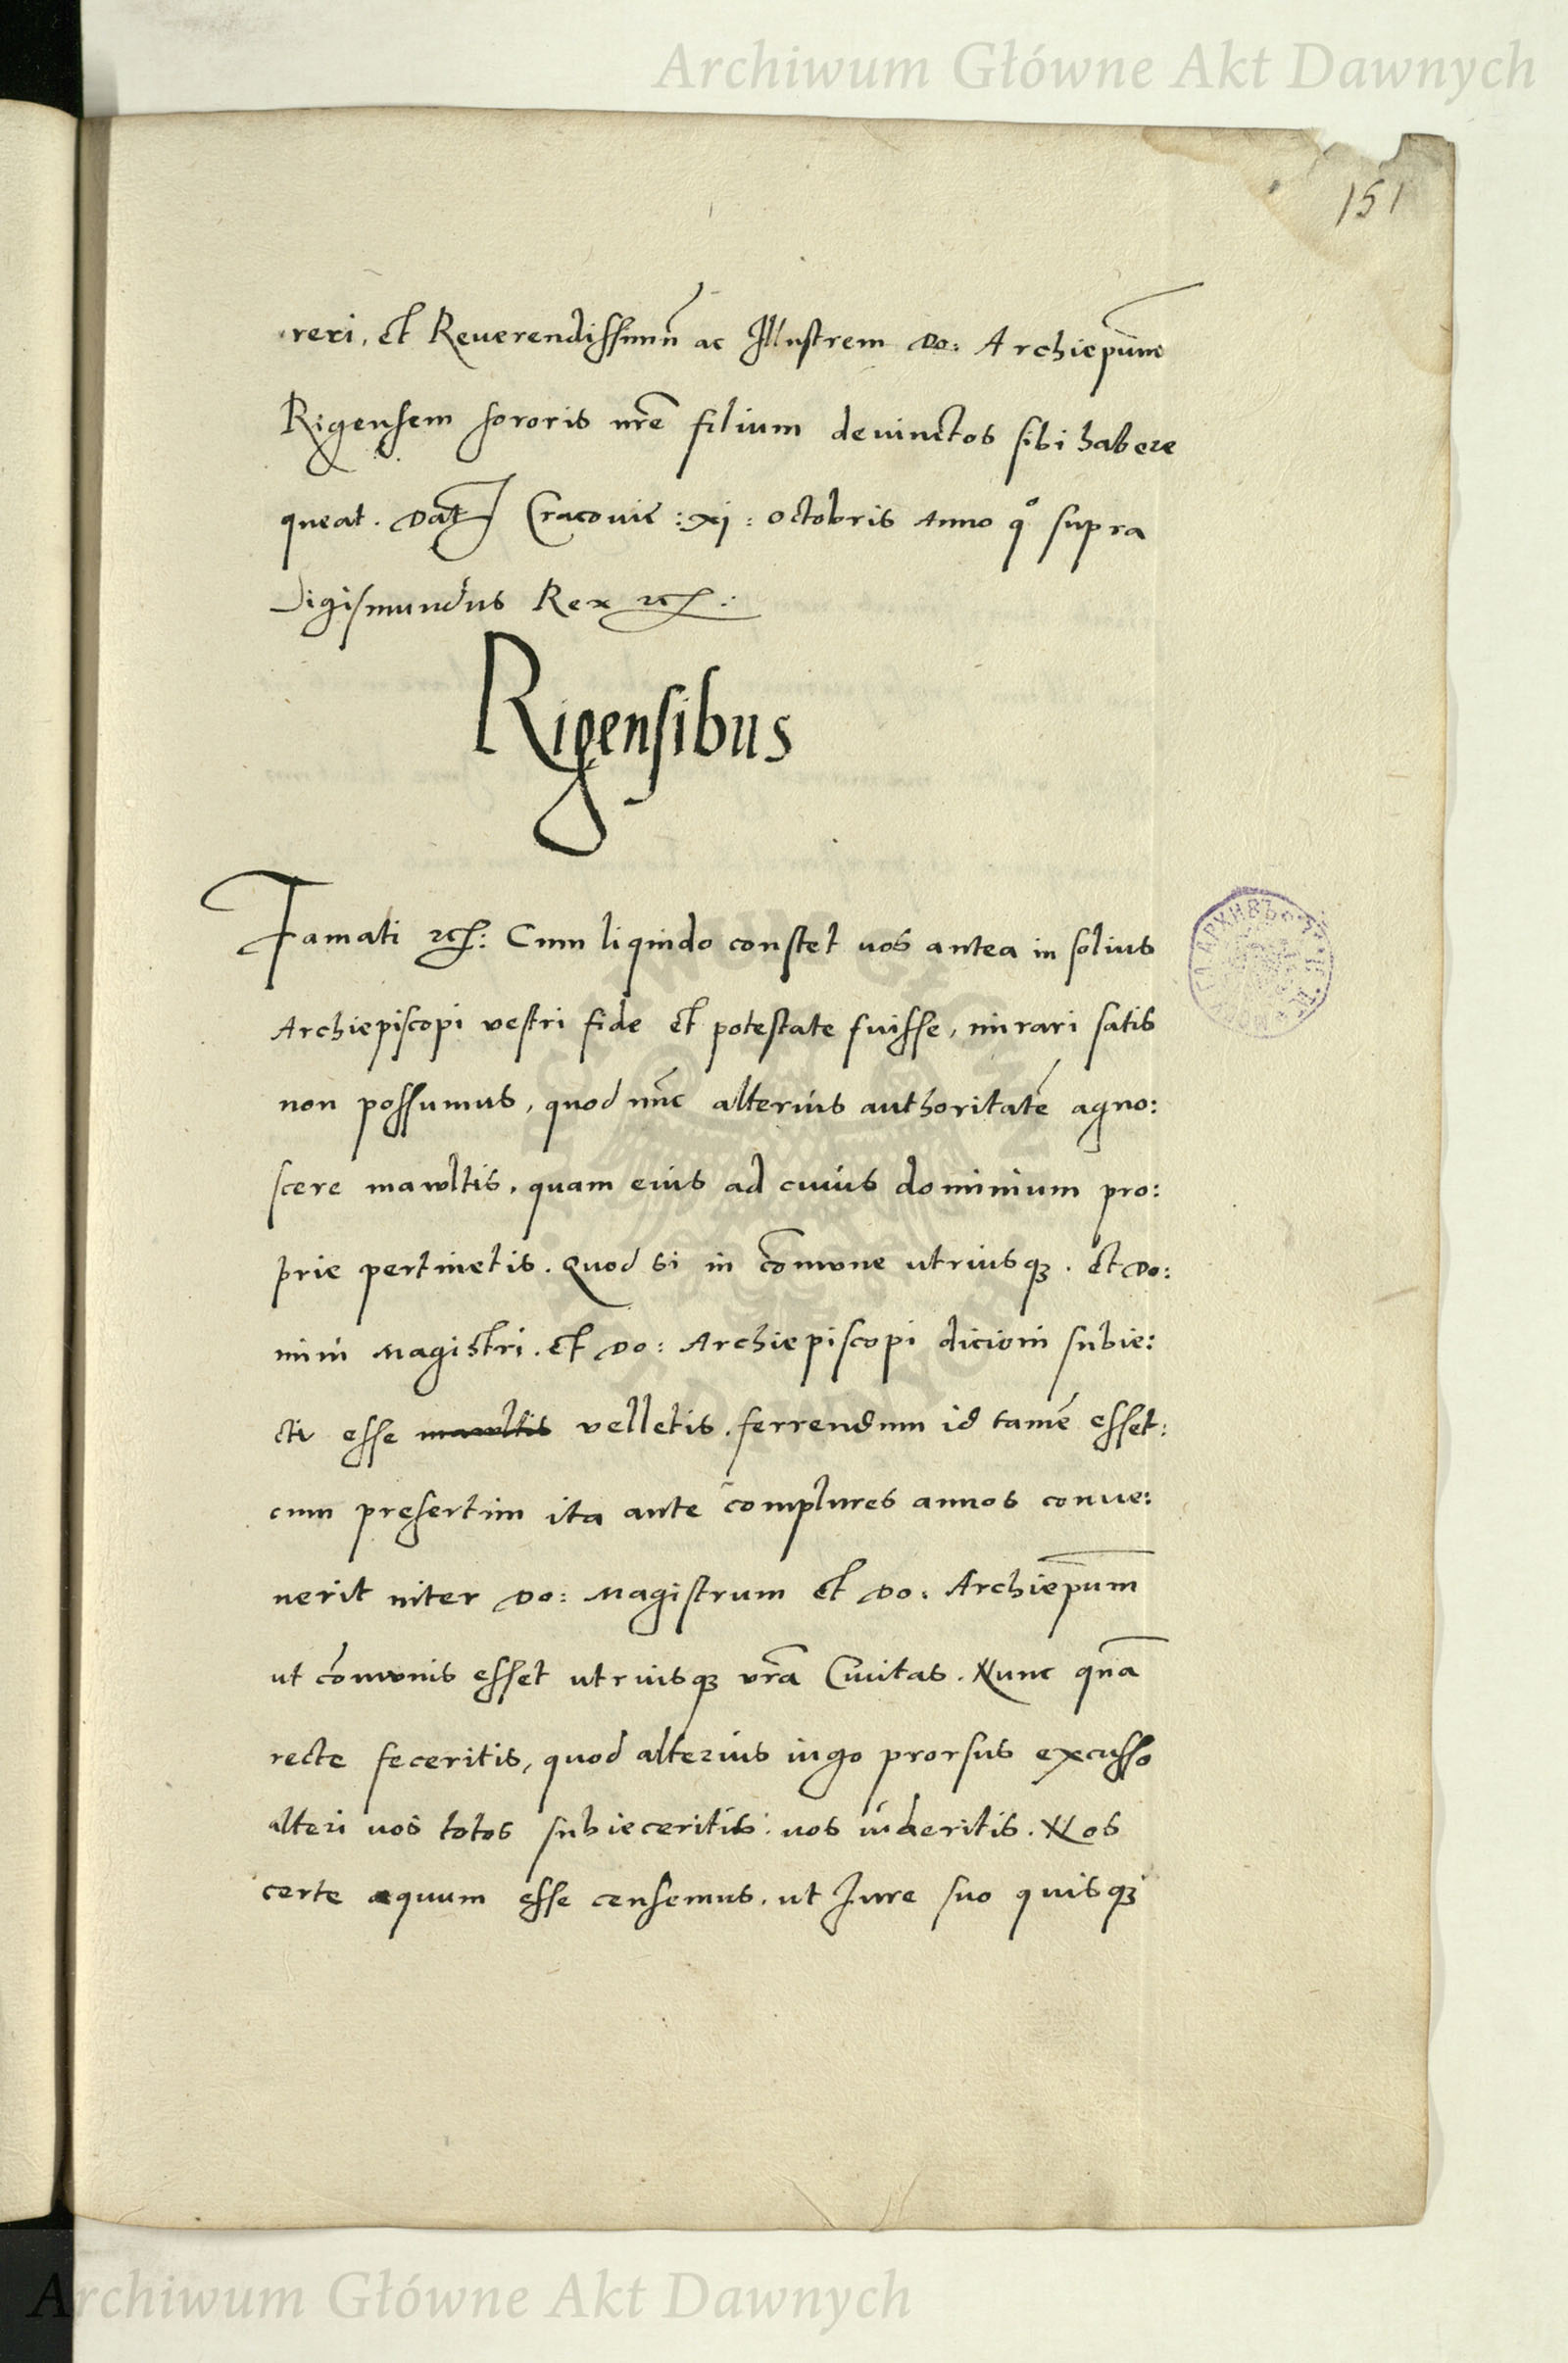 Archiwum Główne Akt Dawnych
151
reri, et Reuerendissimũ ac Illustrem Do: Archiepũm
Rigensem sororis nrẽ filium deuinctos sibi habere
queat. Dat Cracouie :xi: octobris Anno qº supra
Sigismundus Rex etc:
Rigensibus
Famati etc: Cum liquido constet uos antea in solius
Archiepiscopi vestri fide et potestate fuisse, mirari satis
non possumus, quod nũc alterius authoritatẽ agno:
scere mavoltis, quam eius ad cuius dominium pro:
prie pertinetis. Quod si in cõmvne utriusqꝫ. et Do:
mini Magistri. et Do: Archiepiscopi dicioni subie:
cti esse mavoltis velletis. ferrendum id tamẽ esset:
cum presertim ita ante complures annos conue:
nerit inter Do: Magistrum et Do: Archiepũm
ut cõmvnis esset utriusqꝫ vrã Ciuitas. Nunc qnã
recte feceritis, quod alterius iugo prorsus excusso
alteri uos totos subieceritis: uos uideritis. Nos
certe aequum esse censemus. ut Jure suo quisqꝫ
Archiwum Główne Akt Dawnych